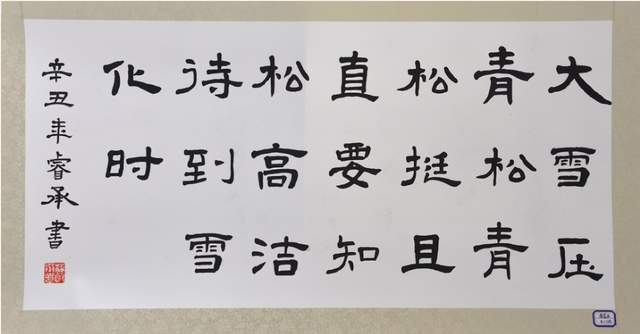 大雪压
青松青
松挺且
直要知
松高洁
待到雪
化时
辛丑年睿承书